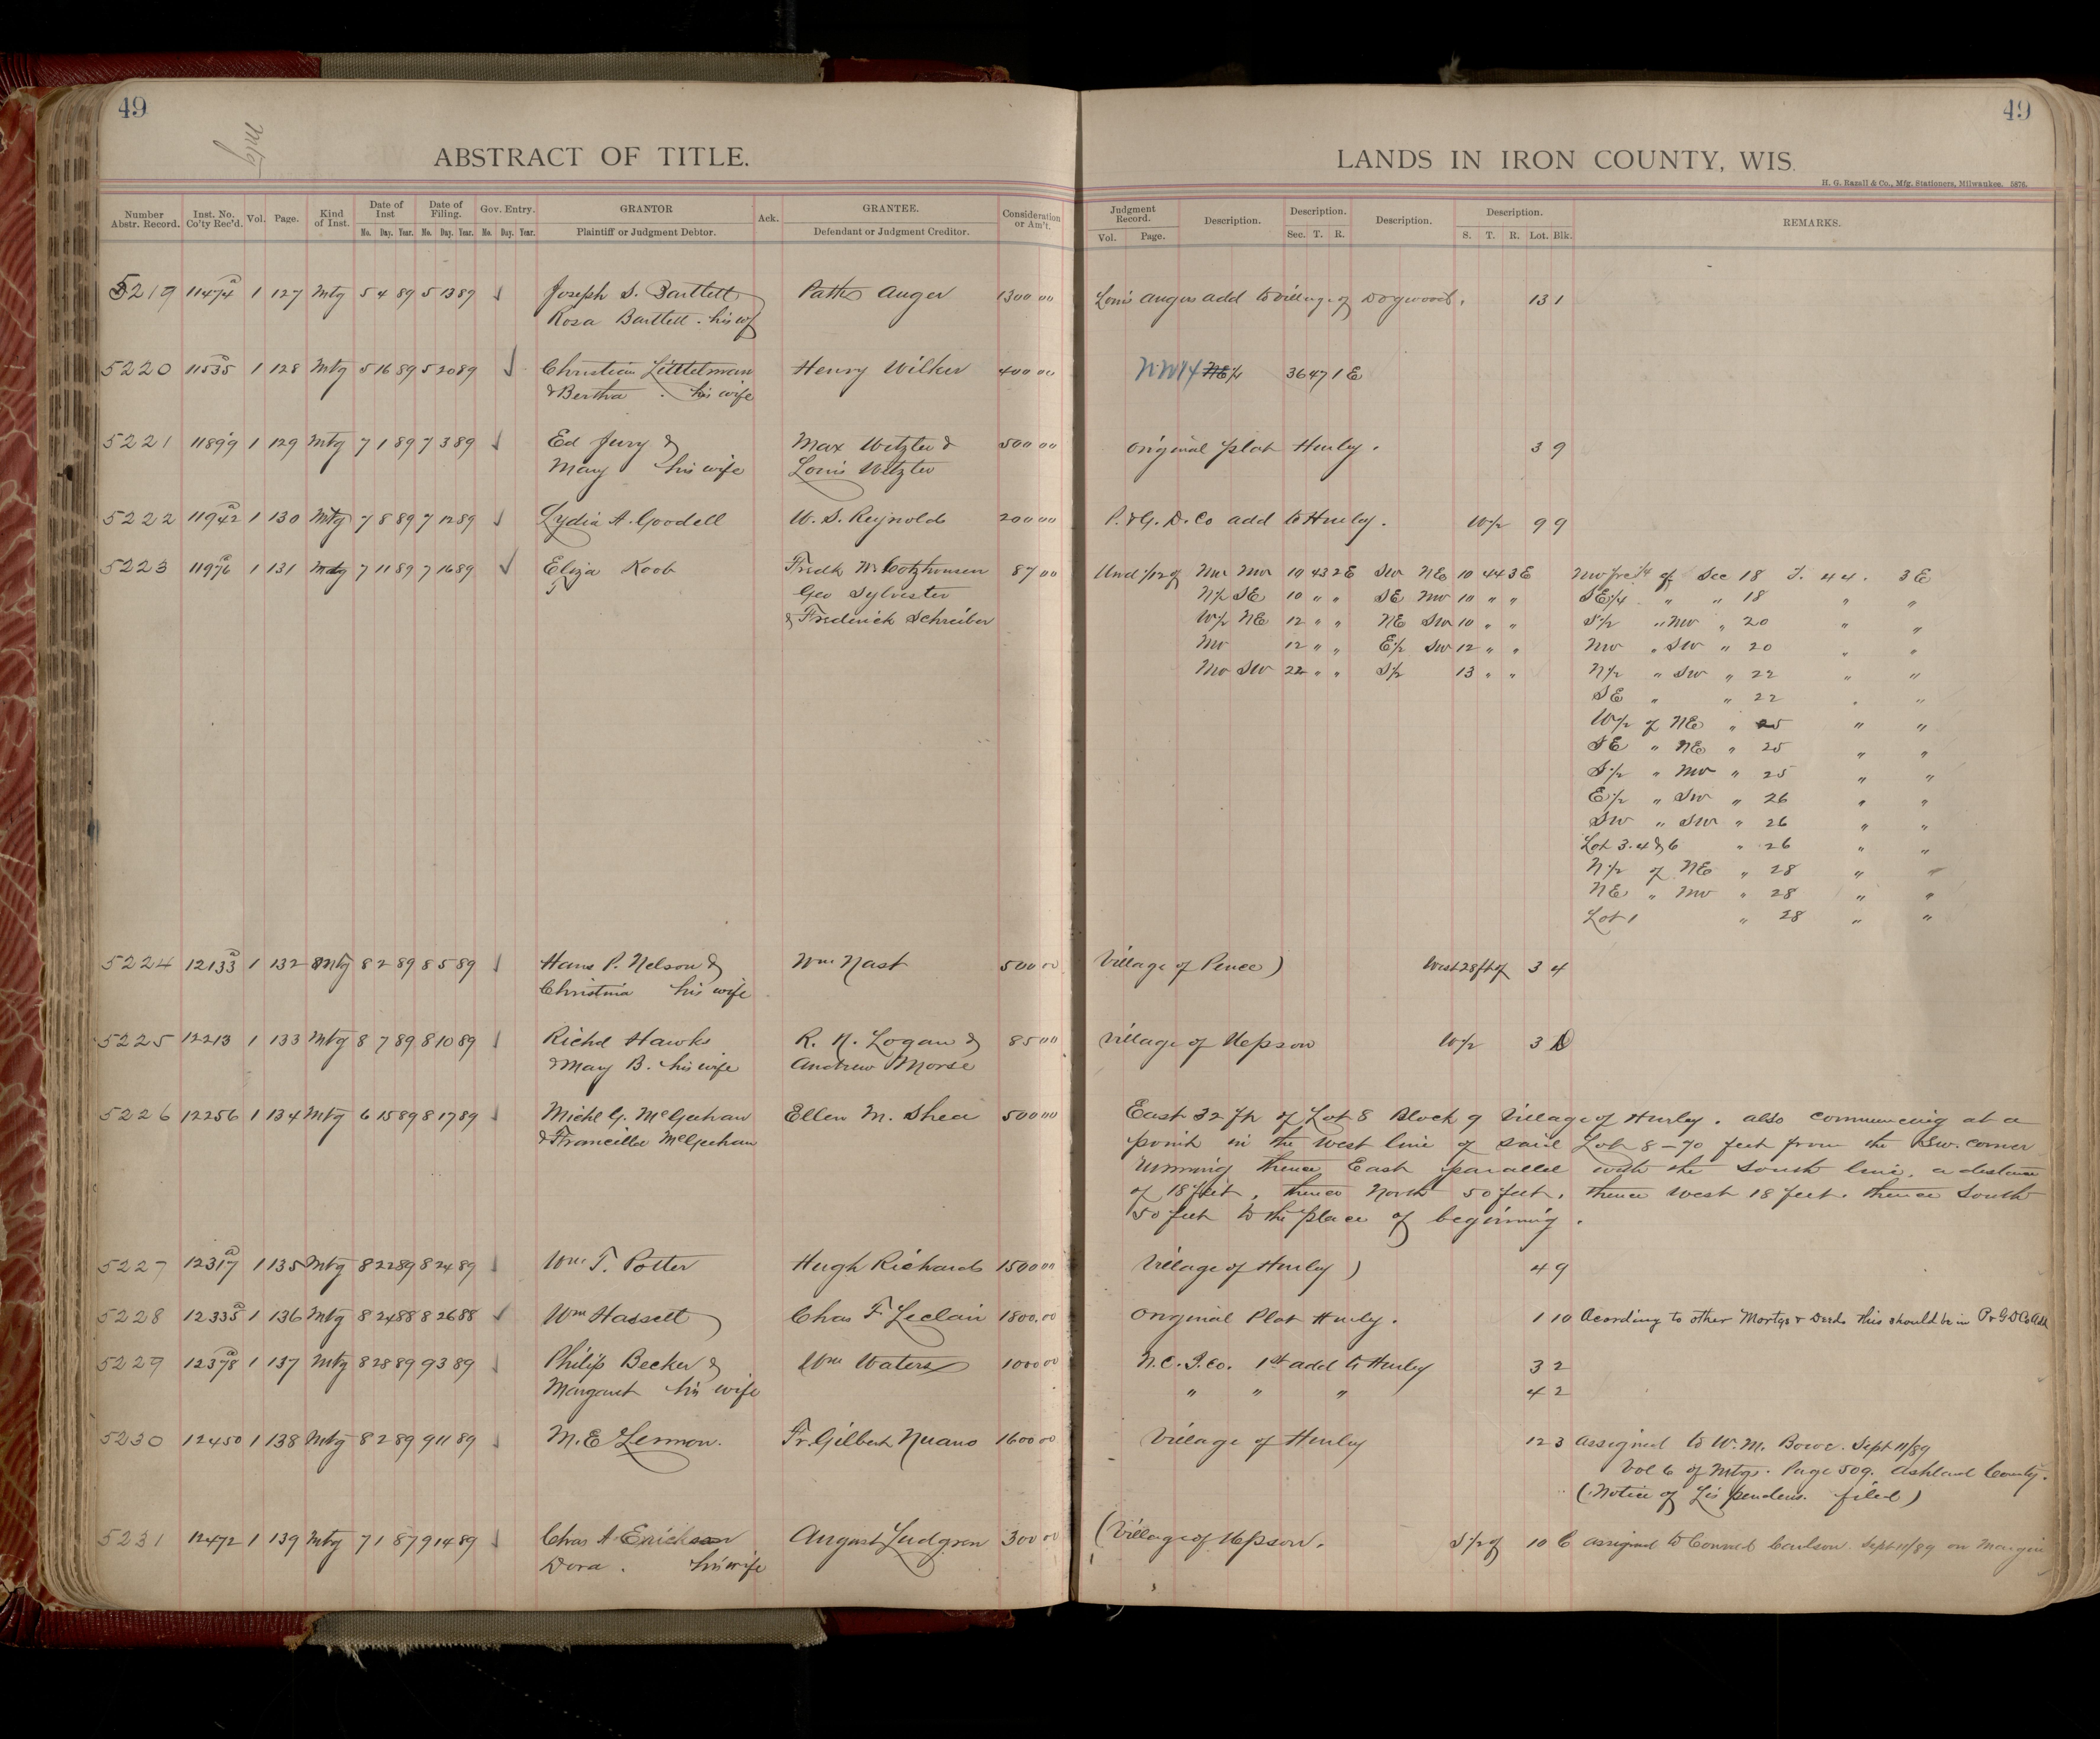 49
49
Mtg
ABSTRACT OF TITLE.
LANDS IN IRON COUNTY, WIS.
H. G. Razall & Co., Mfg. Stationers, Milwaukee. 5876.
Number Abstr. Record. Inst. No. Co'ty Rec'd. Vol. Page. Kind of Inst. Date of Inst No. Day. Year. Date of Filing. No. Day. Year. Gov. Entry. No. Day. Year. GRANTOR Plaintiff or Judgment Debtor. Ack. GRANTEE. Defendant or Judgment Creditor. Consideration or Am't.
Judgment Record. Vol. Page. Description. Description. Sec. T. R. Description. Description. S. T. R. Lot. Blk. REMARKS.
5219 11474 a 1 127 Mtg 5 4 89 5 13 89 Joseph S. Bartlett Auger 1300 00 Louis Augers add to Village of Dogwood. 13 1
Rosa Bartlett. his wf
5220 11535 a 1 128 Mtg 5 16 89 5 20 89 Christian Littleman Henry Wilker 400 00 NW 1/4 NE 1/4 36 47 1 E
& Bertha. his wife
5221 11899 1 129 Mtg 7 1 89 7 3 89 Ed Jury & Max Wetzler & 500 00 Original plat Hurley. 3 9
Mary his wife Louis Wetzler
5222 11942 a 1 130 Mtg 7 8 89 7 12 89 Lydia A. Goodell W. S. Reynolds 200 00 P. & G. D. Co add to Hurley. W 1/2 9 9
5223 11976 a 1 131 Mtg 7 11 89 7 16 89 Eliza Koob Fredk W. Cotzhausen 87 00 Und 1/12 of NW NW 10 43 2E SW NE 10 44 3E NW fre 1/4 of Sec 18 T. 44. 3 E
Geo Sylvester N 1/2 SE 10 " " SE NW 10 " " SE 1/4 " " 18 " "
& Frederick Schreiber W 1/2 NE 12 " " NE SW 10 " " S 1/2 " NW " 20 " "
NW 12 " " E 1/2 SW 12 " " NW " SW " 20 " "
NW SW 22 " " S 1/2 13 " " N 1/2 " SW " 22 " "
SE " " 22 " "
W 1/2 of NE " 25 " "
SE " NE " 25 " "
S 1/2 " NW " 25 " "
E 1/2 " SW " 26 " "
SW " SW " 26 " "
Lot 3.4 & 6 " 26 " "
N 1/2 of NE " 28 " "
NE " NW " 28 " "
Lot 1 " 28 " "
5224 12133 a 1 132 Mtg 8 2 89 8 5 89 Hans P. Nelson & Wm Nast 500 00 Village of Pence) West 28 ft of 3 4
Christina his wife
5225 12213 1 133 Mtg 8 7 89 8 10 89 Richd Hawks R. N. Logan & 85 00 Village of Upson W 1/2 3
& Mary B. his wife Andrew Morse
5226 12256 1 134 Mtg 6 15 89 8 17 89 Michl G. McGeehan Ellen M. Shea 500 00 East 32 ft of Lot 8 Block 9 Village of Hurley. also commencing at a
& Francilla McGeehan point in the west line of said Lot 8 - 70 feet from the SW. corner
running thence East parallel with the South line, a distance
of 18 feet, thence North 50 feet. thence West 18 feet. thence South
50 feet to the place of beginning.
5227 12317 a 1 135 Mtg 8 22 89 8 24 89 Wm. T. Potter Hugh Richards 1500 00 Village of Hurley) 4 9
5228 12335 a 1 136 Mtg 8 24 88 8 26 88 Wm Hassett Chas F. Leclair 1800.00 Original Plat Hurley. 1 10 Acording to other Mortgs & Deeds this should be in P & G D Co Add
5229 12378 a 1 137 Mtg 8 28 89 9 3 89 Philip Becker & Wm Waters 1000 00 N.C.I.Co. 1st add to Hurley 3 2
Margaret his wife " " " 4 2
5230 12450 1 138 Mtg 8 2 89 9 11 89 M.E. Lennon. Fr. Gilbert Nuano 1600 00 Village of Hurley 12 3 Assigned to W. M. Bowe. Sept 11/89
Vol 6 of Mtgs. Page 509. Ashland County.
(Notice of Lis pendens. filed)
5231 12472 1 139 Mtg 7 1 87 9 14 89 Chas A. Erickson August Ludgren 300 00 (Village of Upson. S 1/2 of 10 C assigned to Conrad Carlson. Sept 11/89 on Margin
Dora. his wife